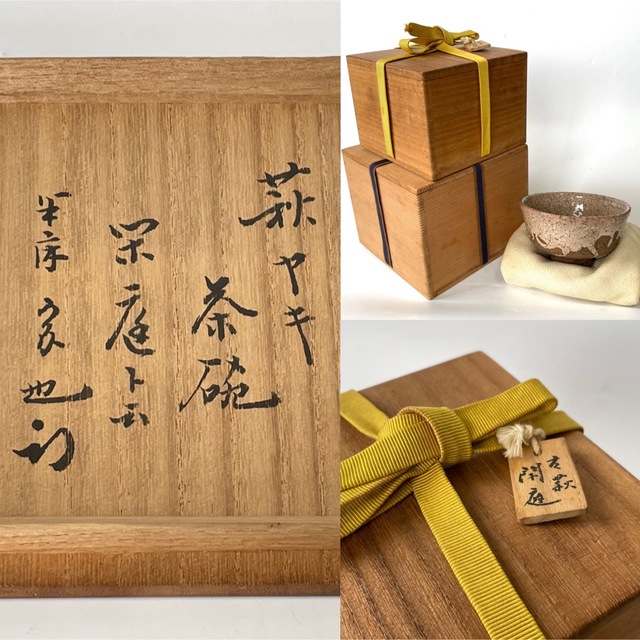 萩ヤキ
茶碗
閑庭ト云
半床家也
古萩
閑庭